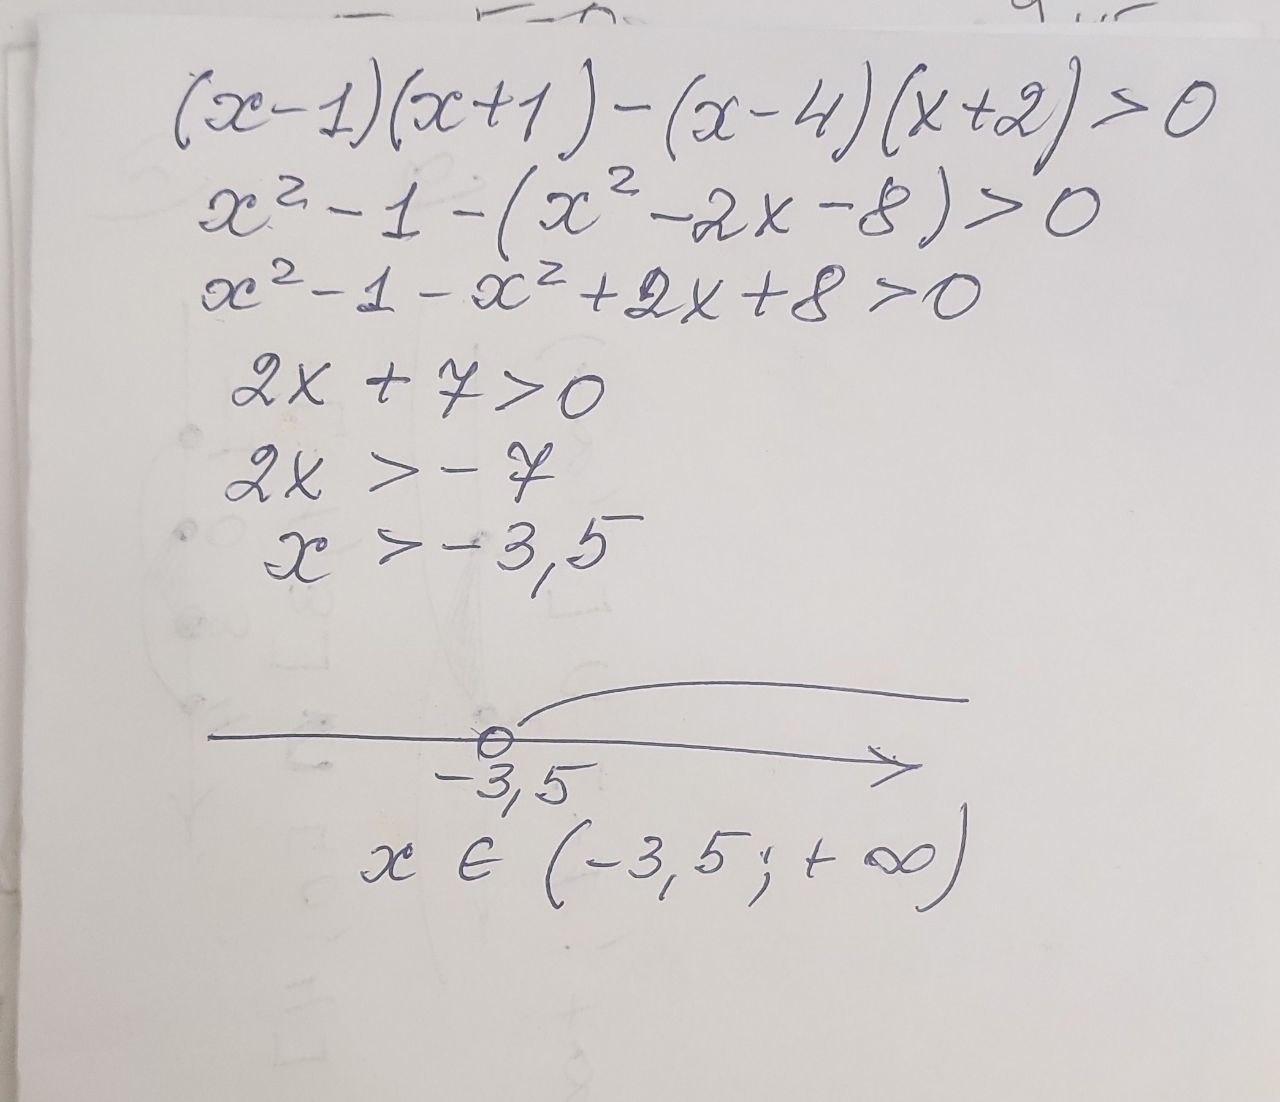 (x-1)(x+1)-(x-4)(x+2)>0
x²-1-(x²-2x-8)>0
x²-1-x²+2x+8>0
2x+7>0
2x>-7
x>-3,5
-3,5
x∈(-3,5;+∞)